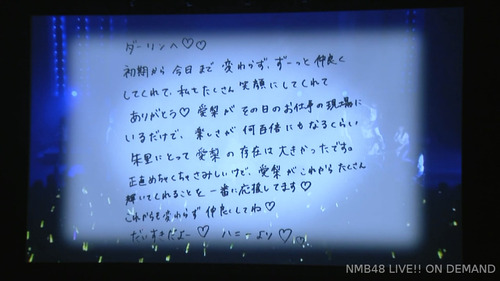 ダーリンへ♡♡
初期から今日まで変わらず、ずーっと仲良く
してくれて、私をたくさん笑顔にしてくれて
ありがとう♡ 愛梨がその日のお仕事の現場に
いるだけで、楽しさが何百倍にもなるくらい
朱里にとって愛梨の存在は大きかったです。
正直めちゃくちゃさみしいけど、愛梨がこれからたくさん
輝いてくれることを一番に応援してます♡
これからも変わらず仲良くしてね♡
だいすきだよー♡ ハニーより♡♡
NMB48 LIVE!! ON DEMAND